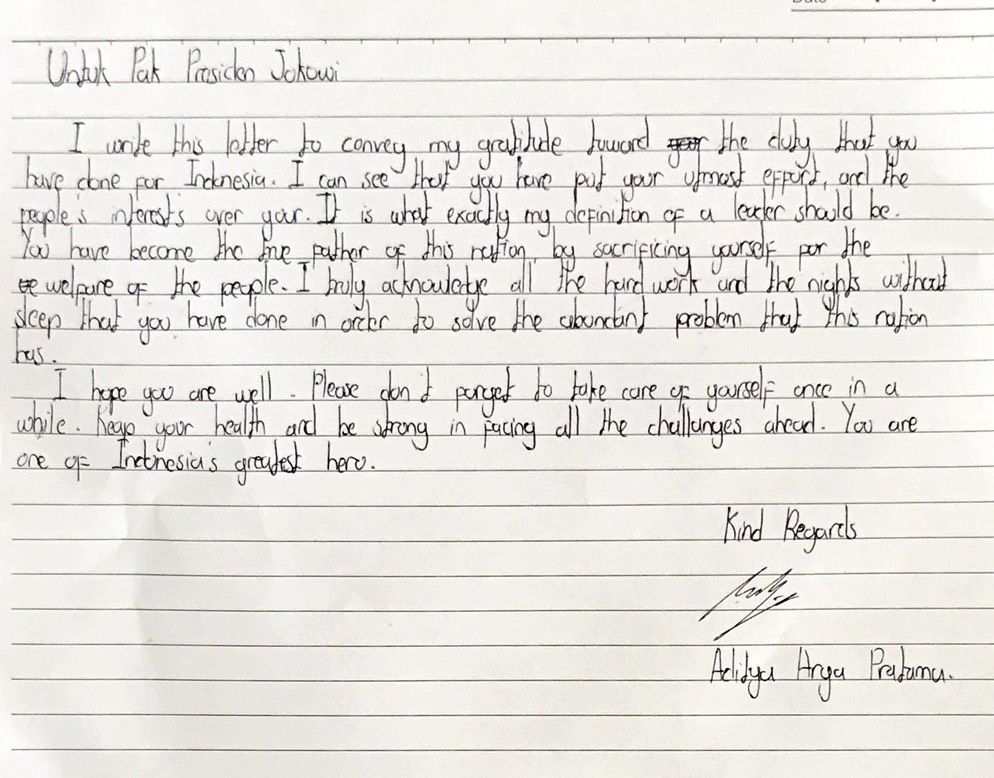 Untuk Pak Presiden Jokowi
I write this letter to convey my gratitude toward the duty that you
have done for Indonesia. I can see that you have put your utmost effort, and the
people's interests over your. It is what exactly my definition of a leader should be.
You have become the true father of this nation, by sacrificing yourself for the
welfare of the people. I truly acknowledge all the hard work and the nights without
sleep that you have done in order to solve the abundant problem that this nation
has.
I hope you are well. Please don't forget to take care of yourself once in a
while. Keep your health and be strong in facing all the challanges ahead. You are
one of Indonesia's greatest hero.
Kind Regards
Aditya Arya Pratama.